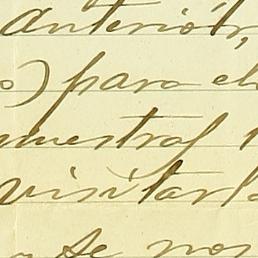 anterior,
o) para el
muestras
visitarla
se nos